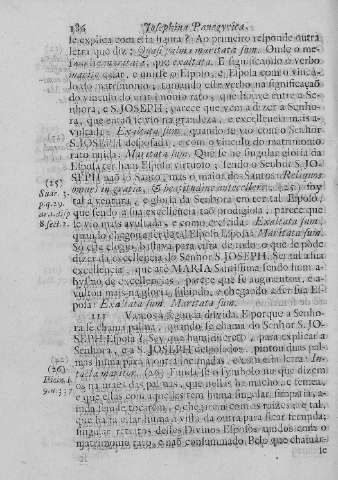 186 Josephina Panegyrica.
se explica com esta figura? Ao primeiro responde outra
letra que diz: Quasi palma maritata sum. Onde o mes-
mo he maritata, que exaltata. E significando o verbo
casar, e unirse o Esposo, e Esposa com o vincu-
lo do matrimonio, tomando este verbo na significaçaõ
do vinculo do matrimonio rato, que houve entre a Se-
nhora, e S. JOSEPH, parece que vem a dizer a Senho-
ra, que entaõ se vio na grandeza, e excellencia mais a-
vultada: Exaltata sum, quando se vio com o Senhor
S. JOSEPH desposada, e com o vinculo do matrimonio
rato unida: Maritata sum. Que se he singular gloria da
Esposa ter hum Esposo virtuoso; sendo o Senhor S. JO-
SEPH naõ só Santo, mas o maior dos Santos: Reliquos
omnes in gratia, & beatitudine antecellere: (25) foy
tal a ventura, e gloria da Senhora em ter tal Esposo,
que sendo a sua excellencia taõ prodigiosa, parece que
se vio mais avultada, e como crescida: Exaltata sum,
quando chegou a ser de tal Esposo Esposa: Maritata sum.
Só este elogio bastava para cifra de tudo o que se póde
dizer da excellencia do Senhor S. JOSEPH. Se tal a sua
excellencia, que até MARIA Santissima sendo hum a-
bysmo de excellencias, parece que se augmentou, e a-
vultou mais na gloria, subindo, e chegando a ser sua Es-
posa: Exaltata sum. Maritata sum.
111 Vamos á segunda divida. E porque a Senho-
ra se chama palma, quando se chama do Senhor S. JO-
SEPH Esposa? Sey que hum para explicar a
Senhora, e a S. JOSEPH desposados, pintou duas pal-
mas huma para a outra inclinadas, e com esta letra: In-
maritor. (26) Funda-se o symbolo no que dizem
os na mas das palmas, que nellas ha macho, e femea,
e que ellas com aquelles tem huma singular sympatia, a-
inda sem se tocarem, e chegarem com as raizes; e tal,
que ha de estar huma á vista da outra para ficar fecunda;
singular retrato destes Divinos Esposos unidos com o
matrimonio rato, e naõ consummado. Pelo que chamar-
se
(25)
Suar. 3.
p. q. 29.
ar. 2. disp
8. sect. 2.
(26)